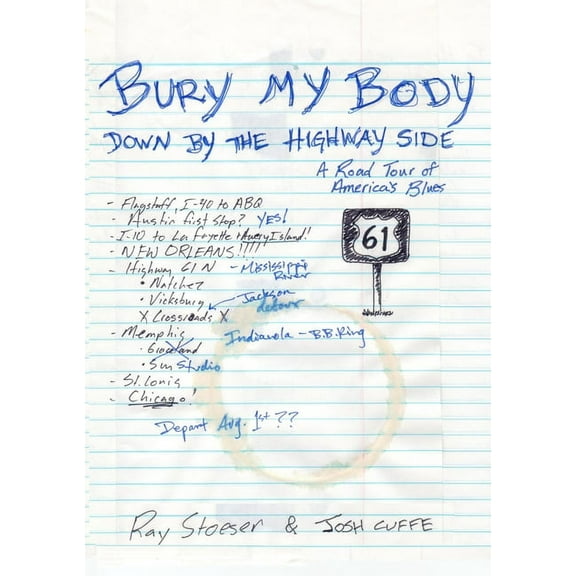 BURY MY BODY
DOWN BY THE HIGHWAY SIDE
A Road Tour of
America's Blues
- Flagstaff, I-40 to ABQ
- Austin first stop? YES!
- I-10 to Lafayette + Avery Island!
- NEW ORLEANS!!!!!
- Highway 61 N - Mississippi River
• Natchez
• Vicksburg
Jackson detour
X Crossroads X
- Memphis
Indianola - B.B. King
• Graceland
• Sun Studio
- St. Louis
- Chicago!
Depart Aug. 1st ??
61
Ray Stoeser & JOSH CUFFE